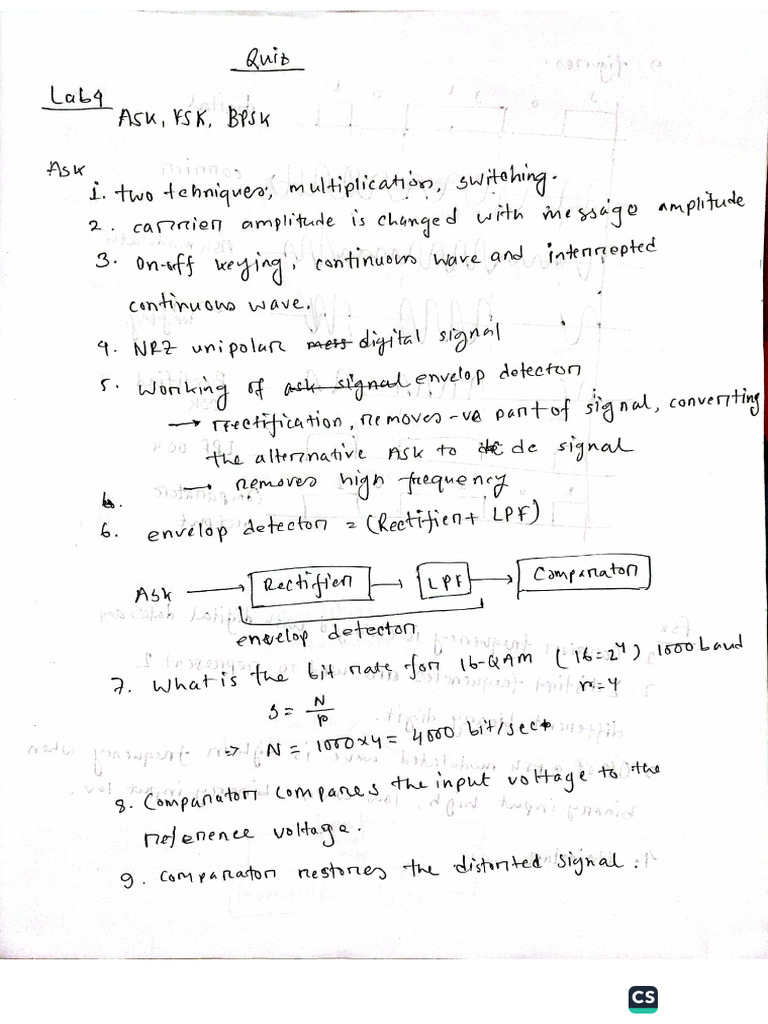 Quiz
Lab4
ASK, FSK, BPSK
ASK
1. two tehniques; multiplication, switching.
2. carrier amplitude is changed with message amplitude
3. on-off keying, continuous wave and interrepted
continuous wave.
4. NRZ unipolar mess digital signal
5. working of ask signal envelop detector
→ rectification, removes -ve part of signal, converting
the alternative ASK to dc signal
→ removes high frequency
6.
6. envelop detector = (Rectifier + LPF)
ASK → Rectifier → LPF → Comparator
envelop detector
7. What is the bit rate for 16-QAM (16=2⁴) 1000 baud
r=4
S = N/r
⇒ N = 1000×4 = 4000 bit/sec
8. Comparator compares the input voltage to the
reference voltage.
9. comparator restores the distorted signal.
CS